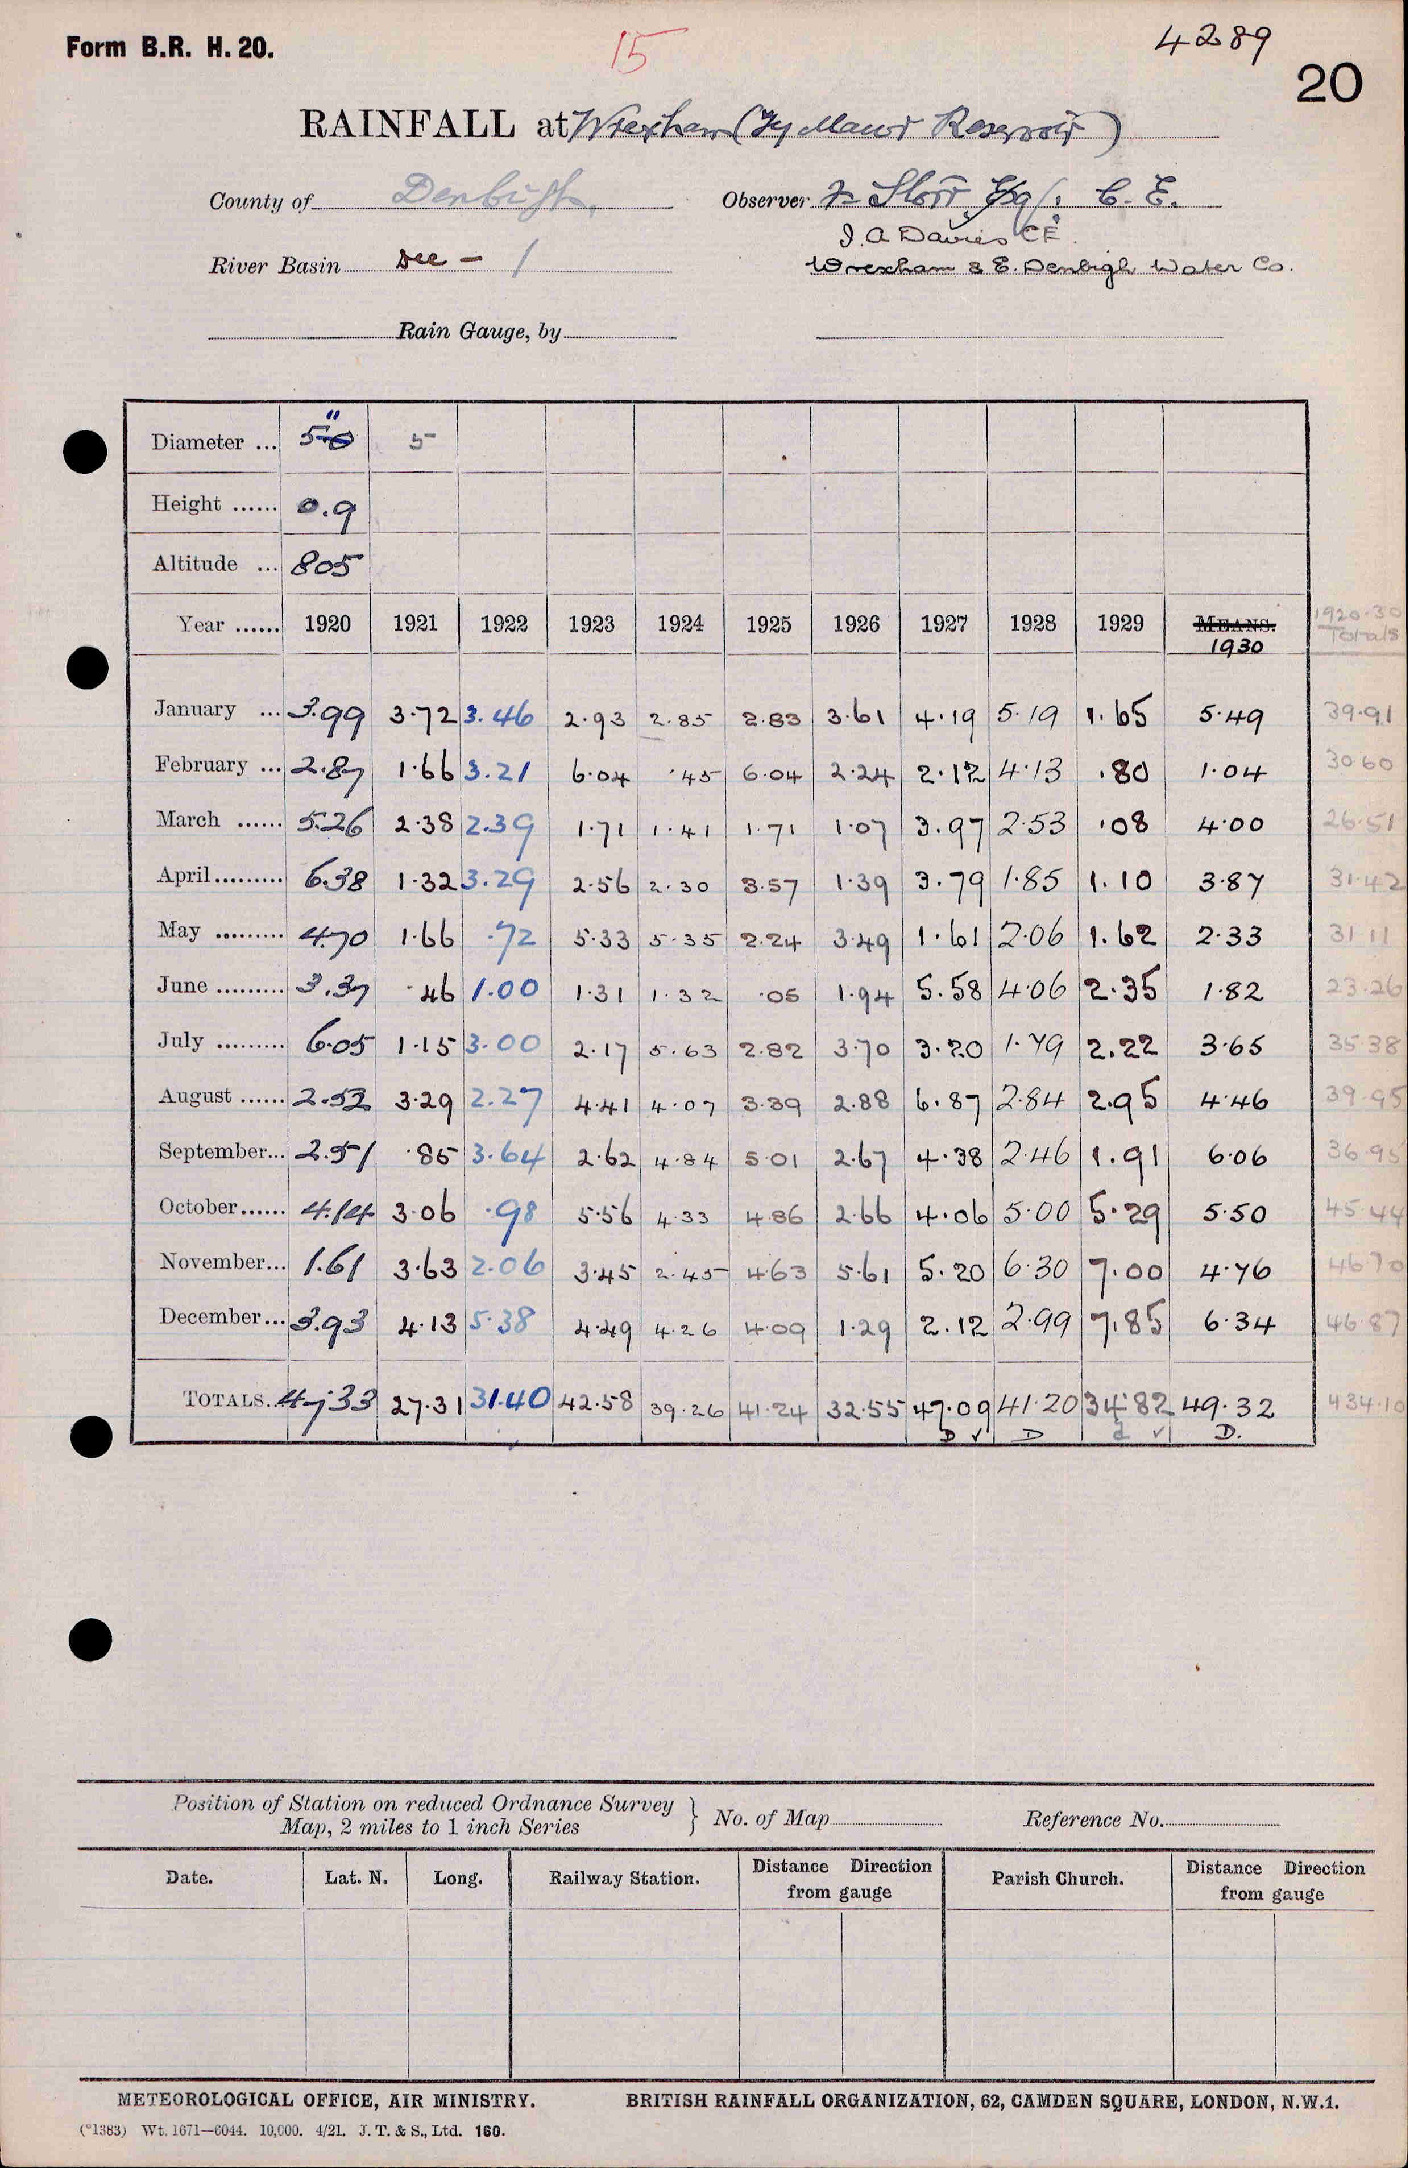 Form B.R. H. 20.
15
4289
20
RAINFALL at Wrexham (Ty Mawr Reservoir)
County of Denbigh.
Observer F Storr Esq., C. E.
J. A Davies CE.
River Basin Dee - 1
Wrexham & E. Denbigh Water Co.
Rain Gauge, by
Diameter ... 5" 5
Height ...... 0.9
Altitude ... 805
Year ...... 1920 1921 1922 1923 1924 1925 1926 1927 1928 1929 MEANS. 1930 1920-30 Totals
January ... 3.99 3.72 3.46 2.93 2.85 2.83 3.61 4.19 5.19 1.65 5.49 39.91
February ... 2.87 1.66 3.21 6.04 .45 6.04 2.24 2.12 4.13 .80 1.04 30.60
March ...... 5.26 2.38 2.39 1.71 1.41 1.71 1.07 3.97 2.53 .08 4.00 26.51
April ......... 6.38 1.32 3.29 2.56 2.30 3.57 1.39 3.79 1.85 1.10 3.87 31.42
May ......... 4.70 1.66 .72 5.33 5.35 2.24 3.49 1.61 2.06 1.62 2.33 31.11
June ......... 3.37 .46 1.00 1.31 1.32 .05 1.94 5.58 4.06 2.35 1.82 23.26
July ......... 6.05 1.15 3.00 2.17 5.63 2.82 3.70 3.20 1.79 2.22 3.65 35.38
August ...... 2.52 3.29 2.27 4.41 4.07 3.39 2.88 6.87 2.84 2.95 4.46 39.95
September... 2.51 .85 3.64 2.62 4.84 5.01 2.67 4.38 2.46 1.91 6.06 36.95
October...... 4.14 3.06 .98 5.56 4.33 4.86 2.66 4.06 5.00 5.29 5.50 45.44
November... 1.61 3.63 2.06 3.45 2.45 4.63 5.61 5.20 6.30 7.00 4.76 46.70
December... 3.93 4.13 5.38 4.49 4.26 4.09 1.29 2.12 2.99 7.85 6.34 46.87
TOTALS.. 47.33 27.31 31.40 42.58 39.26 41.24 32.55 47.09 41.20 34.82 49.32 434.10
D ✓ D d ✓ D.
Position of Station on reduced Ordnance Survey
Map, 2 miles to 1 inch Series } No. of Map Reference No.
Date. Lat. N. Long. Railway Station. Distance Direction from gauge Parish Church. Distance Direction from gauge
METEOROLOGICAL OFFICE, AIR MINISTRY. BRITISH RAINFALL ORGANIZATION, 62, CAMDEN SQUARE, LONDON, N.W.1.
(*1383) Wt. 1671—6044. 10,000. 4/21. J. T. & S., Ltd. 160.